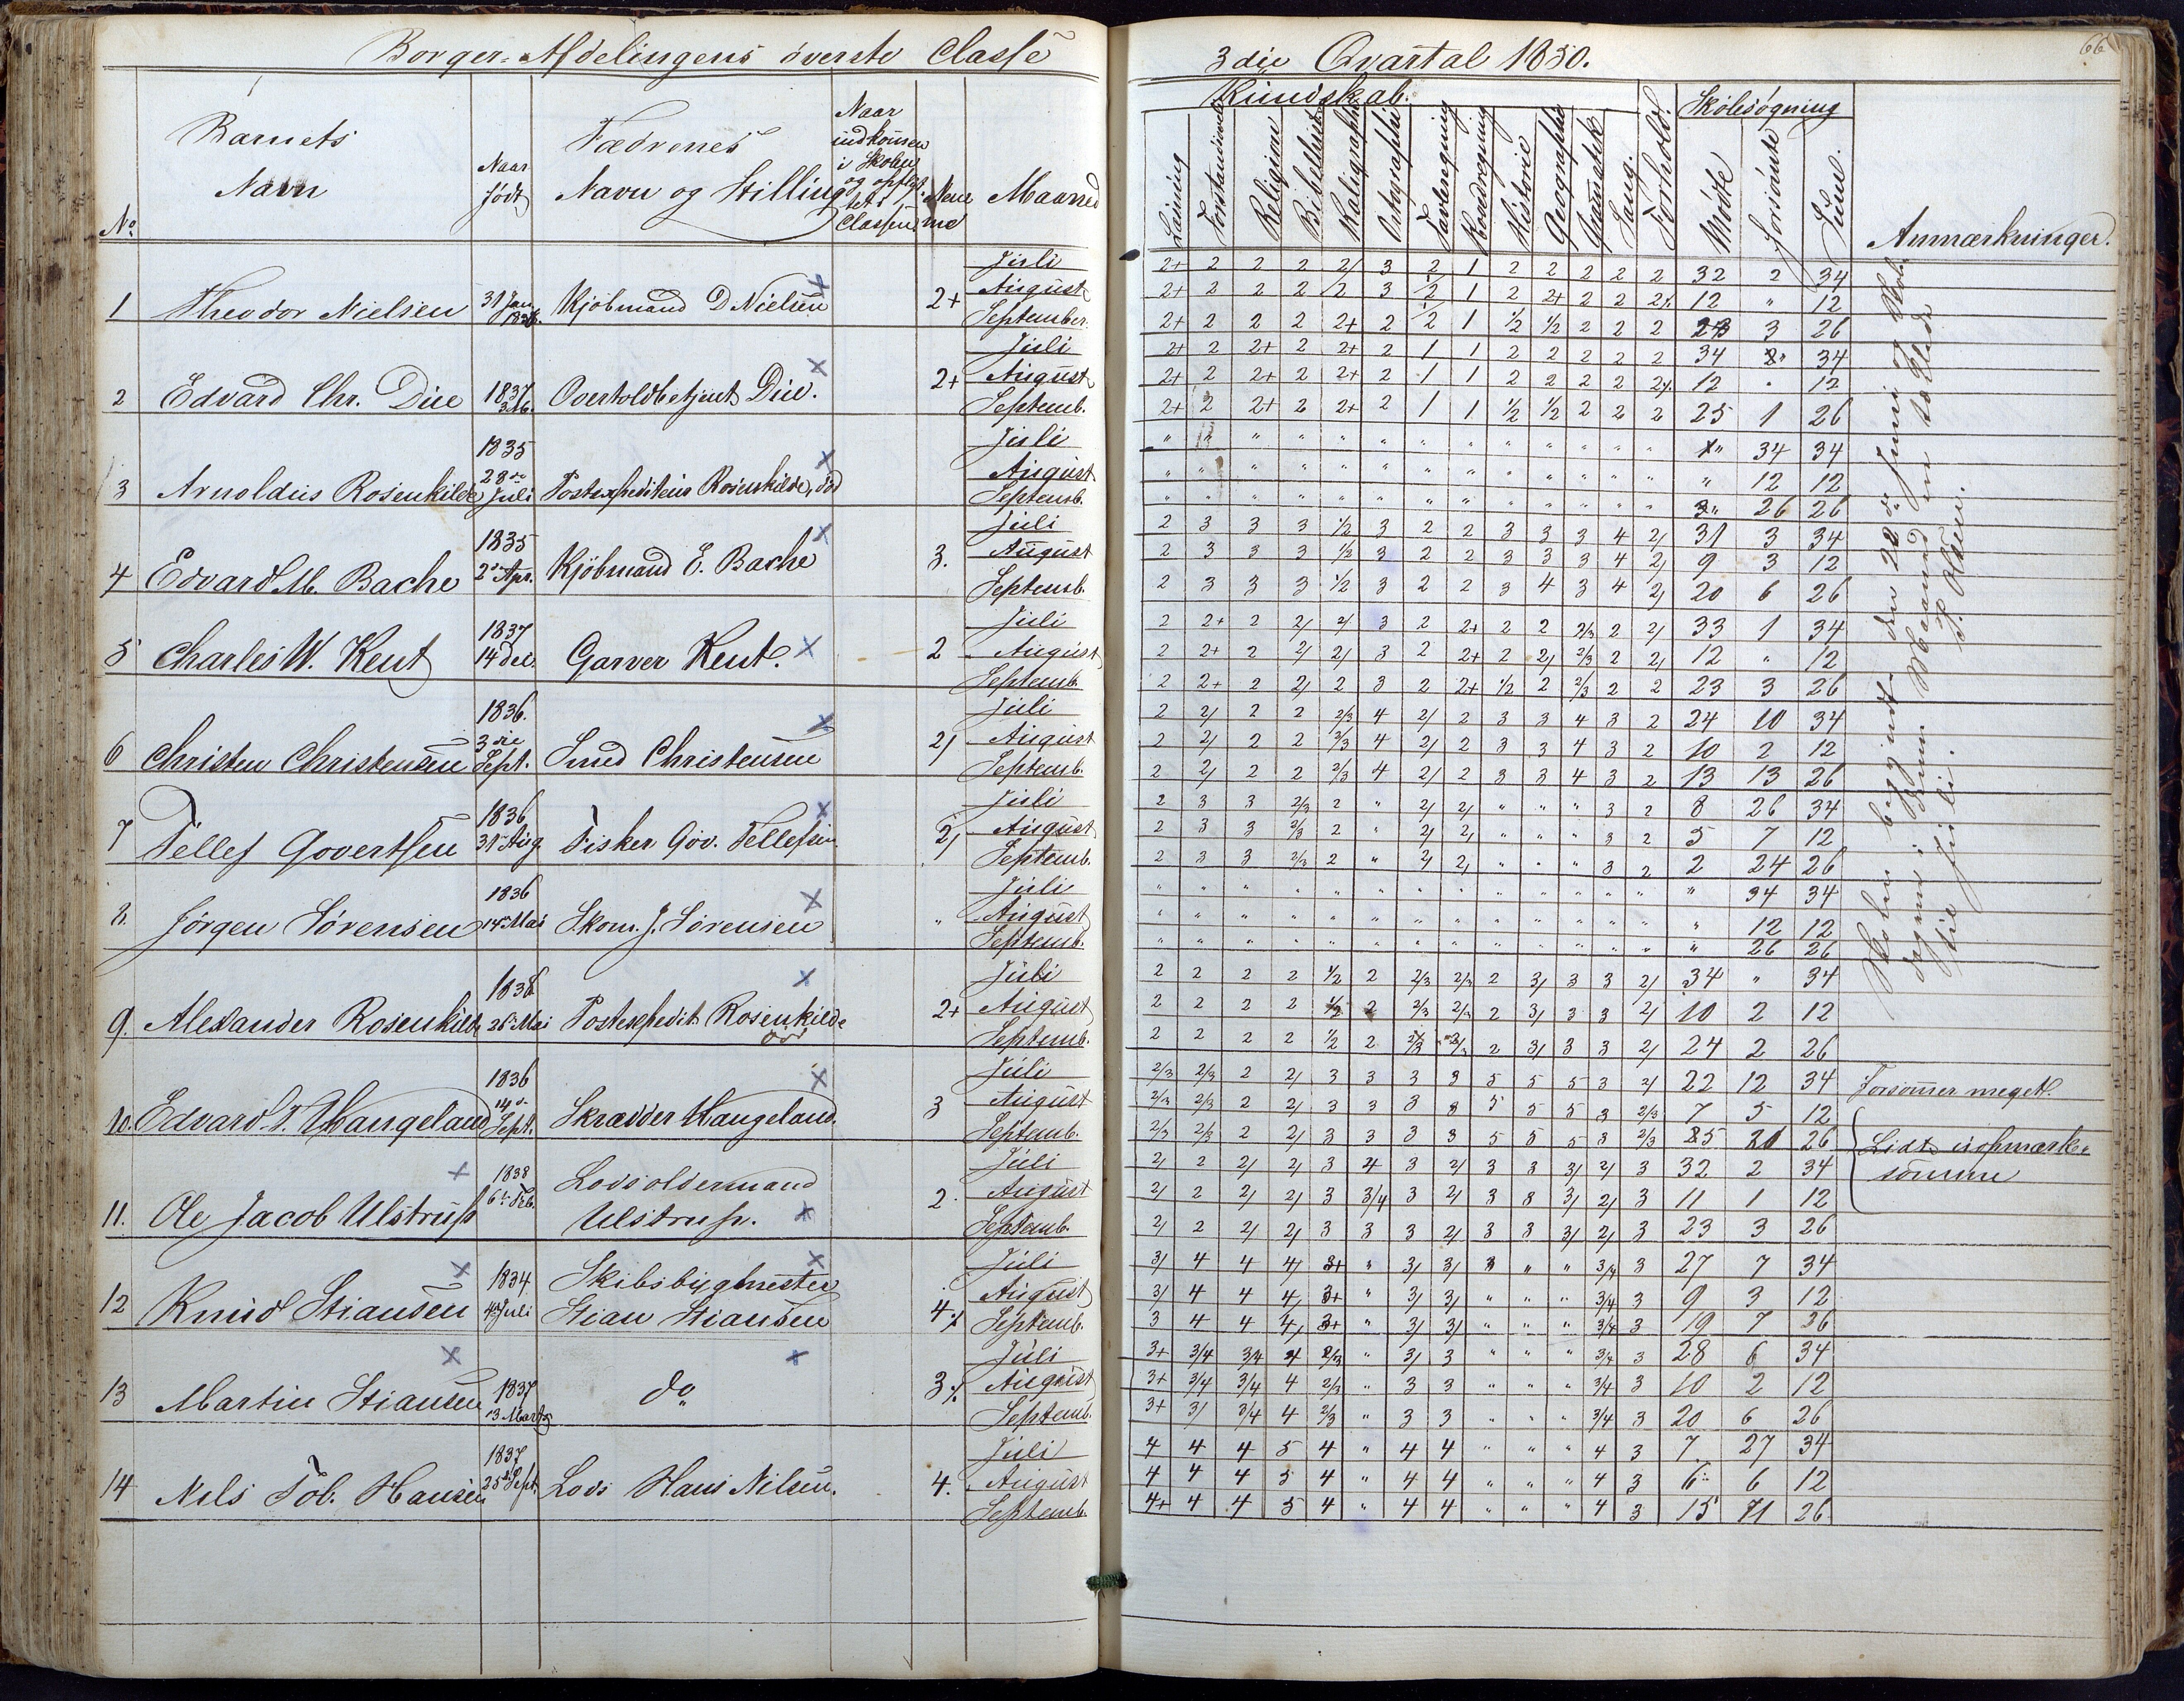 Borger-Afdelingens överste Classe
No
Barnets Navn
Naar født
Fædrenes Navn og Stilling
Naar indkommen i Skolen og opflyttet i Classen
Maaned
1 Theodor Nielsen 31 Jan. 1836. Kjöbmand D Nielsen 2+ Juli August September
2 Edvard Chr. Due 1837 Overtoldbetjent Due. 2+ Juli August Septemb.
3 Arnoldus Rosenkilde 1835 28de Juli Postexpediteur Rosenkilde, död Juli August Septemb.
4 Edvard M. Bache 1835 2den Apr. Kjöbmand E. Bache 3. Juli August Septemb.
5 Charles W. Kent 1837 14 Dec. Garver Kent. 2 Juli August Septemb.
6 Christen Christensen 1836. 3die Sept. Smed Christensen 2/ Juli August Septemb.
7 Tellef Govertsen 1836 31 Aug. Fisker Gov. Tellefsen 2/ Juli August Septemb.
8. Jörgen Sörensen 1836 14 Mai Skom. J. Sörensen " Juli August Septemb.
9. Alexander Rosenkilde 1838 26 Mai Postexpedit. Rosenkilde död 2+ Juli August Septemb.
10. Edvard T. Haugeland 1836 14de Sept. Skrædder Haugeland. 3 Juli August Septemb.
11. Ole Jacob Ulstrup 1838 6te Feb. Lodsoldermand Ulstrup. 2. Juli August Septemb.
12 Knud Stiansen 1834 4 Juli Skibsbygmester Stian Stiansen 4 Juli August Septemb.
13 Martin Stiansen 1837 13 Marts do 3 Juli August Septemb.
14 Nils Tob. Hansen 1837 25de Sept. Lods Hans Nilsen. 4. Juli August Septemb.
3die Qvartal 1850.
66
Kundskab.
Skolesøgning
Læsning Forstandsøvelse Religion Bibelhist. Kaligraphi Ortographi Tavleregning Hovedregning Historie Geographie Gramatik Sang. Forhold. Mødte forsömte Sum. Anmærkninger.
2+ 2 2 2 2/ 3 2 1 2 2 2 2 2 32 2 34
2+ 2 2 2 2 3 1/2 1 2 2+ 2 2 2/. 12 " 12
2+ 2 2 2 2+ 2 1/2 1 1/2 1/2 2 2 2 23 3 26
2+ 2 2+ 2 2+ 2 1 1 2 2 2 2 2 34 " 34
2+ 2 2+ 2 2+ 2 1 1 2 2 2 2 2/. 12 " 12
2+ 2 2+ 2 2+ 2 1 1 1/2 1/2 2 2 2 25 1 26
" " " " " " " " " " " " " " 34 34
" " " " " " " " " " " " " " 12 12
" " " " " " " " " " " " " " 26 26
2 3 3 3 1/2 3 2 2 3 3 3 4 2/ 31 3 34
2 3 3 3 1/2 3 2 2 3 3 3 4 2/ 9 3 12
2 3 3 3 1/2 3 2 2 3 4 3 4 2/ 20 6 26
2 2+ 2 2/ 2/ 3 2 2+ 2 2 2/3 2 2/ 33 1 34
2 2+ 2 2/ 2/ 3 2 2+ 2 2/ 2/3 2 2/ 12 " 12
2 2+ 2 2/ 2 3 2 2+ 1/2 2 2/3 2 2 23 3 26
2 2/ 2 2 2/3 4 2/ 2 3 3 4 3 2 24 10 34
2 2/ 2 2 2/3 4 2/ 2 3 3 4 3 2 10 2 12
2 2/ 2 2 2/3 4 2/ 2 3 3 4 3 2 13 13 26
2 3 3 2/3 2 " 2/ 2/ " " " 3 2 8 26 34
2 3 3 2/3 2 " 2/ 2/ " " " 3 2 5 7 12
2 3 3 2/3 2 " 2/ 2/ " " " 3 2 2 24 26
" " " " " " " " " " " " " " 34 34
" " " " " " " " " " " " " " 12 12
" " " " " " " " " " " " " " 26 26
2 2 2 2 1/2 2 2/3 2/3 2 3/ 3 3 2/ 34 " 34
2 2 2 2 1/2 2 2/3 2/3 2 3/ 3 3 2/ 10 2 12
2 2 2 2 1/2 2 2/3 2/3 2 3/ 3 3 2/ 24 2 26
2/3 2/3 2 2/ 3 3 3 3 5 5 5 3 2/ 22 12 34 Forsömmer meget.
2/3 2/3 2 2/ 3 3 3 3 5 5 5 3 2/3 7 5 12
2/3 2/3 2 2/ 3 3 3 3 5 5 5 3 2/3 26 Lidt uopmærksommen
2/ 2 2/ 2/ 3 4 3 2/ 3 3 3/ 2/ 3 32 2 34
2/ 2 2/ 2/ 3 3/4 3 2/ 3 3 3/ 2/ 3 11 1 12
2/ 2 2/ 2/ 3 3 3 2/ 3 3 3/ 2/ 3 23 3 26
3/ 4 4 4/ 3+ " 3/ 3/ " " " 3/4 3 27 7 34
3/ 4 4 4/ 3+ " 3/ 3/ " " " 3/4 3 9 3 12
3 4 4 4/ 3+ " 3/ 3/ " " " 3/4 3 19 7 26
3+ 3/4 3/4 4 2/3 " 3/ 3 " " " 3/4 3 28 6 34
3+ 3/4 3/4 4 2/3 " 3 3 " " " 3/4 3 10 2 12
3+ 3/ 3/4 4 2/3 " 3 3 " " " 3/4 3 20 6 26
4 4 4 5 4 " 4 4 " " " 4 3 7 27 34
4 4 4 5 4 " 4 4 " " " 4 3 6 6 12
4+ 4 4 5 4 " 4 4 " " " 4 3 15 11 26
Skolen begyndt den 28de Juni
Maaned
til Juli.
P. Olsen.